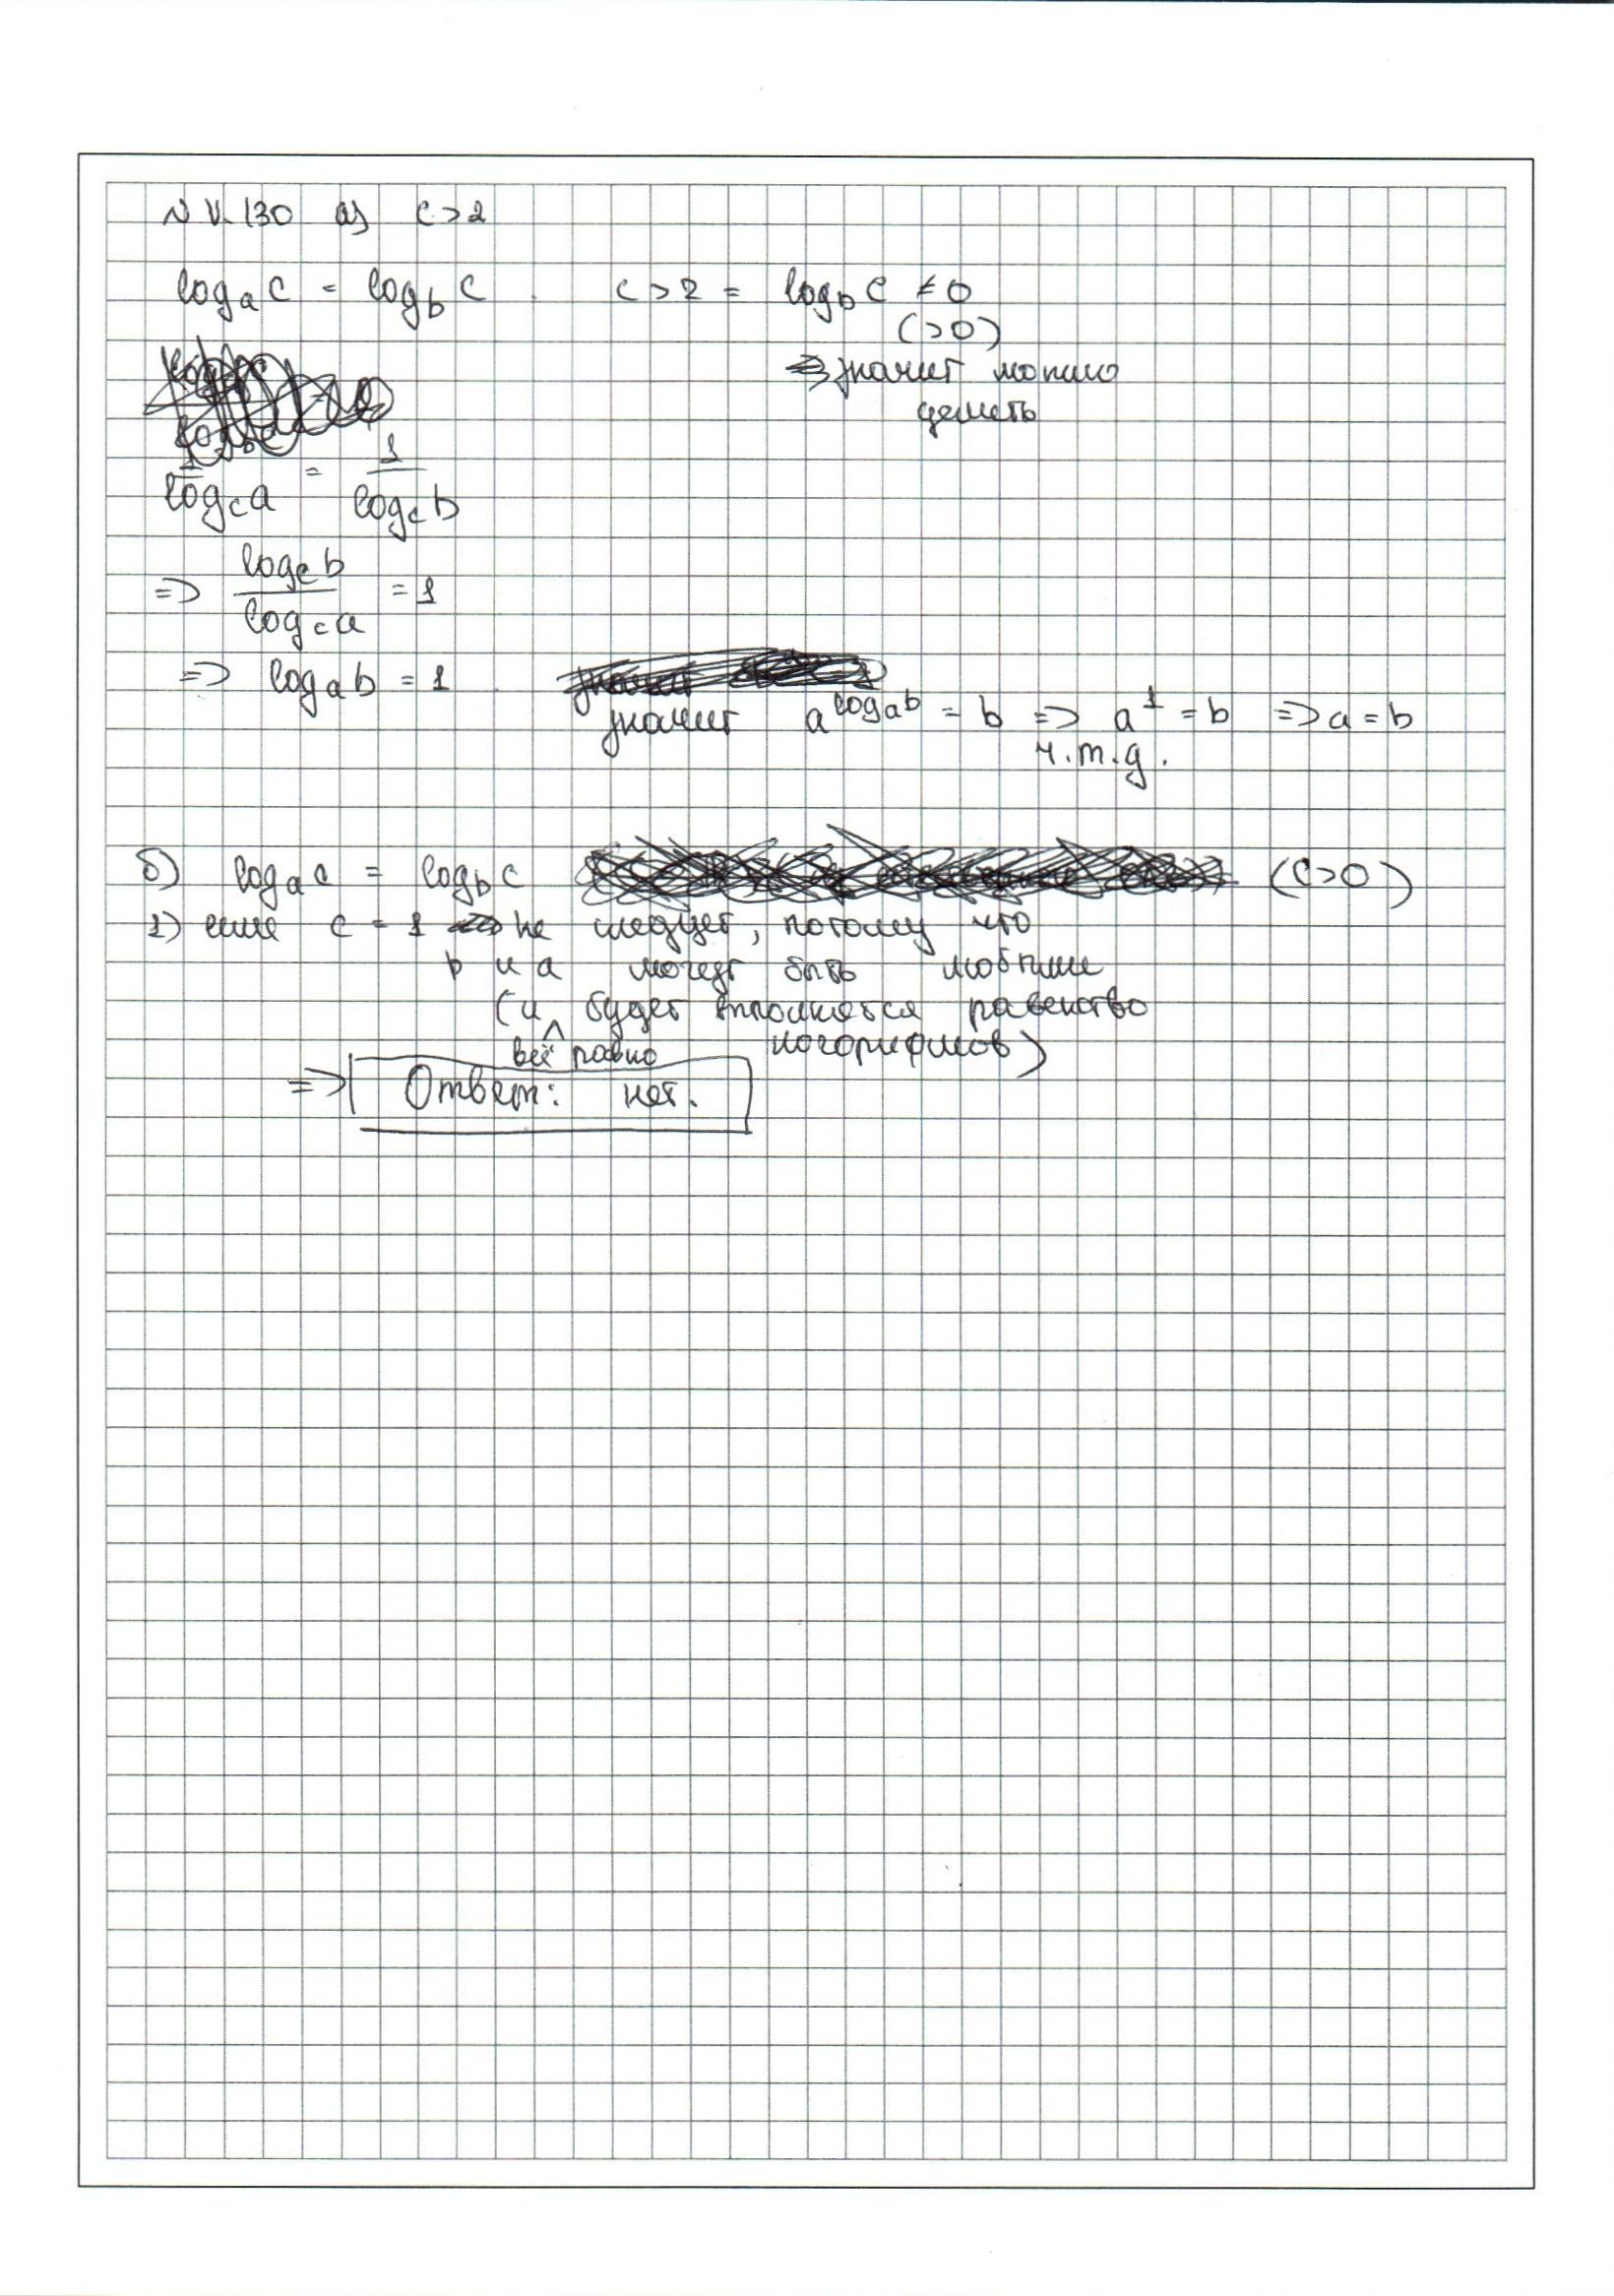 N V.130 а) c>2
log_a c = log_b c . c>2 = log_b c ≠ 0
(>0)
значит можно
делить
1/log_c a = 1/log_c b
=> log_c b / log_c a = 1
=> log_a b = 1 .
значит a^{log_a b} = b => a^1 = b => a = b
ч.т.д.
б) log_a c = log_b c (c>0)
1) если c = 1 не следует, потому что
b и a могут быть любыми
(и будет выполнятся равенство
всё равно логорифмов)
=> Ответ: нет.